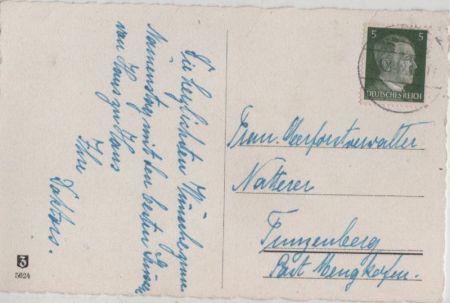 Die herzlichsten Wünsche zum
Namenstag mit den besten Grüßen
von Haus zu Haus
Ihre
Frau Oberforstverwalter
Natterer
Tunzenberg
Post Mengkofen.
5
5
DEUTSCHES REICH
5024